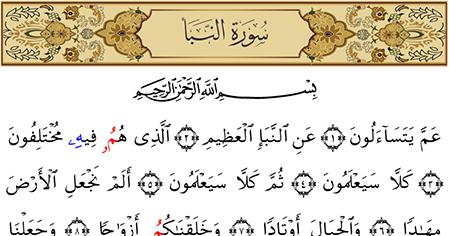 سُورَةُ النَّبَإِ
بِسْمِ ٱللَّهِ ٱلرَّحْمَٰنِ ٱلرَّحِيمِ
عَمَّ يَتَسَآءَلُونَ ﴿١﴾ عَنِ ٱلنَّبَإِ ٱلْعَظِيمِ ﴿٢﴾ ٱلَّذِى هُمُۥ فِيهِۦ مُخْتَلِفُونَ
﴿٣﴾ كَلَّا سَيَعْلَمُونَ ﴿٤﴾ ثُمَّ كَلَّا سَيَعْلَمُونَ ﴿٥﴾ أَلَمْ نَجْعَلِ ٱلْأَرْضَ
مِهَٰدًا ﴿٦﴾ وَٱلْجِبَالَ أَوْتَادًا ﴿٧﴾ وَخَلَقْنَٰكُمُۥ أَزْوَٰجًا ﴿٨﴾ وَجَعَلْنَا